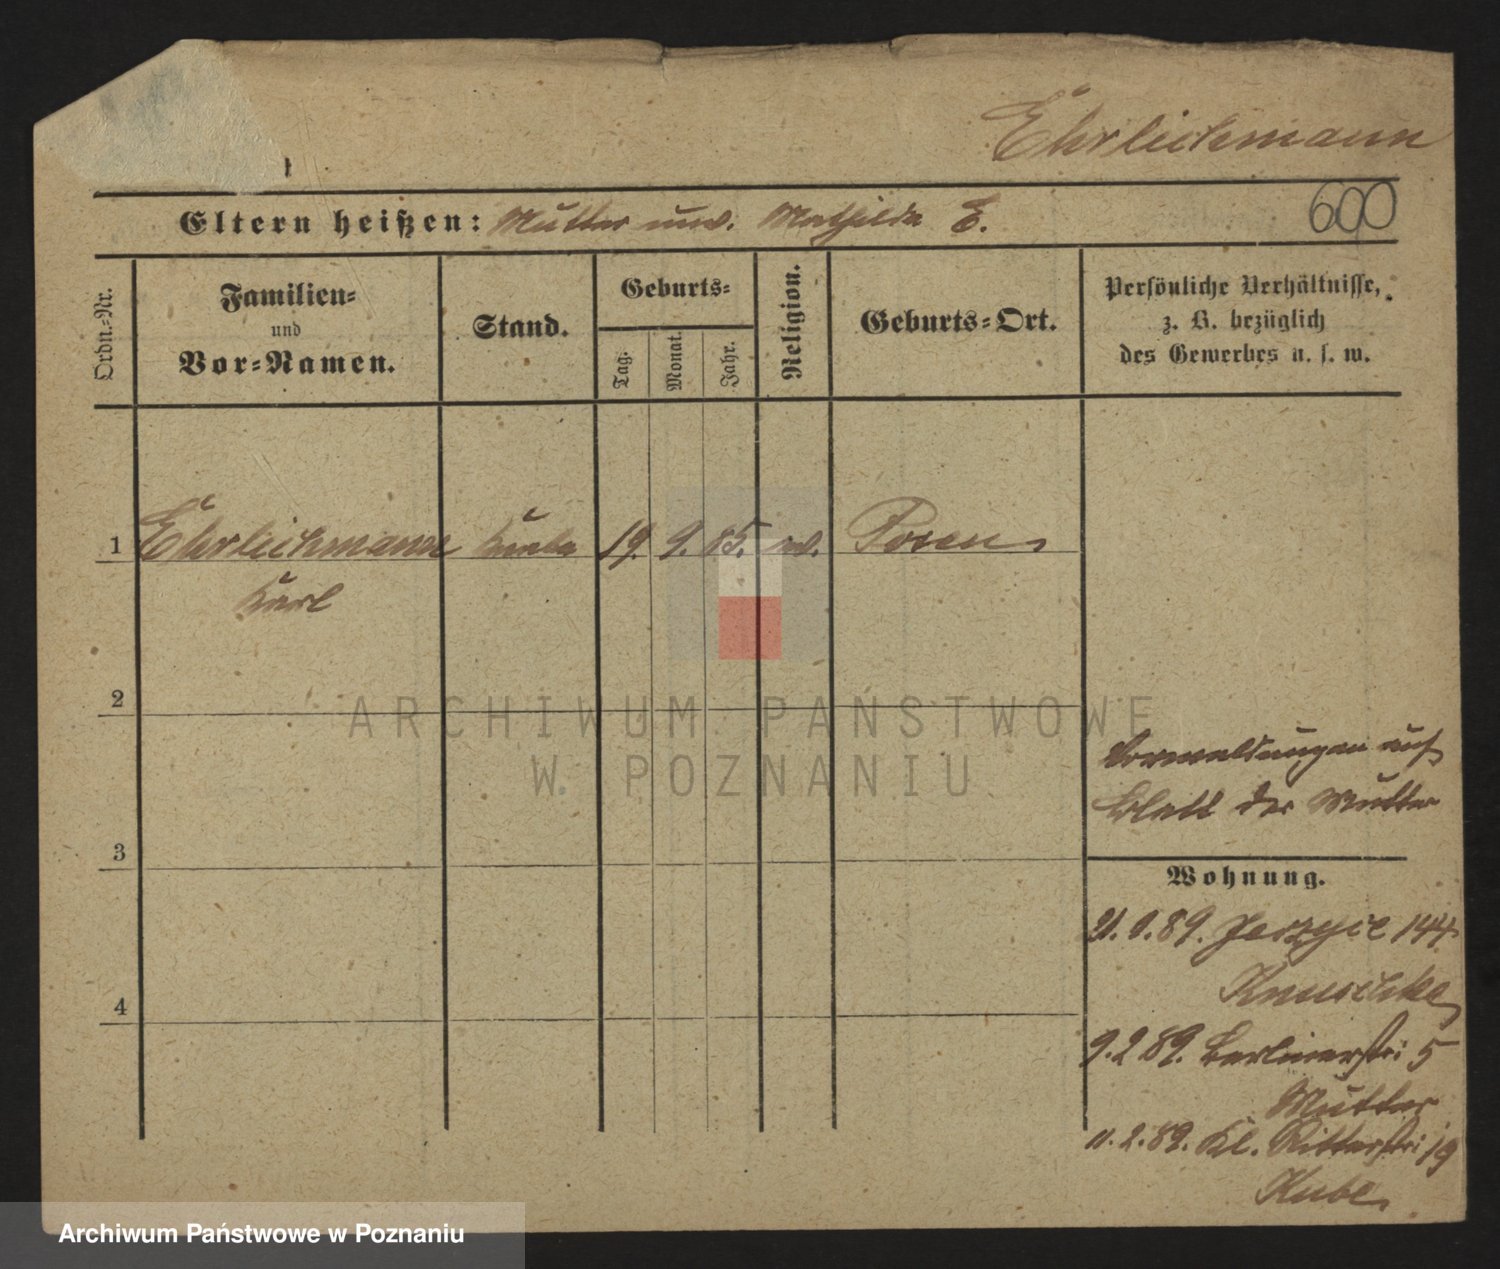 Ehrlichmann
600
Eltern heißen: Mutter unv. Mathilde E.
Ordn.-Nr.
Familien-
und
Vor-Namen.
Stand.
Geburts-
Tag.
Monat.
Jahr.
Religion.
Geburts-Ort.
Persönliche Verhältnisse,
z. B. bezüglich
des Gewerbes u. s. w.
1 Ehrlichmann Knabe 19. 9. 85. Posen
Karl
2
ARCHIWUM PAŃSTWOWE
W POZNANIU
auf
Blatt der Mutter
3
Wohnung.
89. Jerzyce 144
Knuschke
4
9. 2. 89. Berlinerstr. 5
Mutter
11. 2. 89. Kl. Ritterstr. 19
Kube
Archiwum Państwowe w Poznaniu